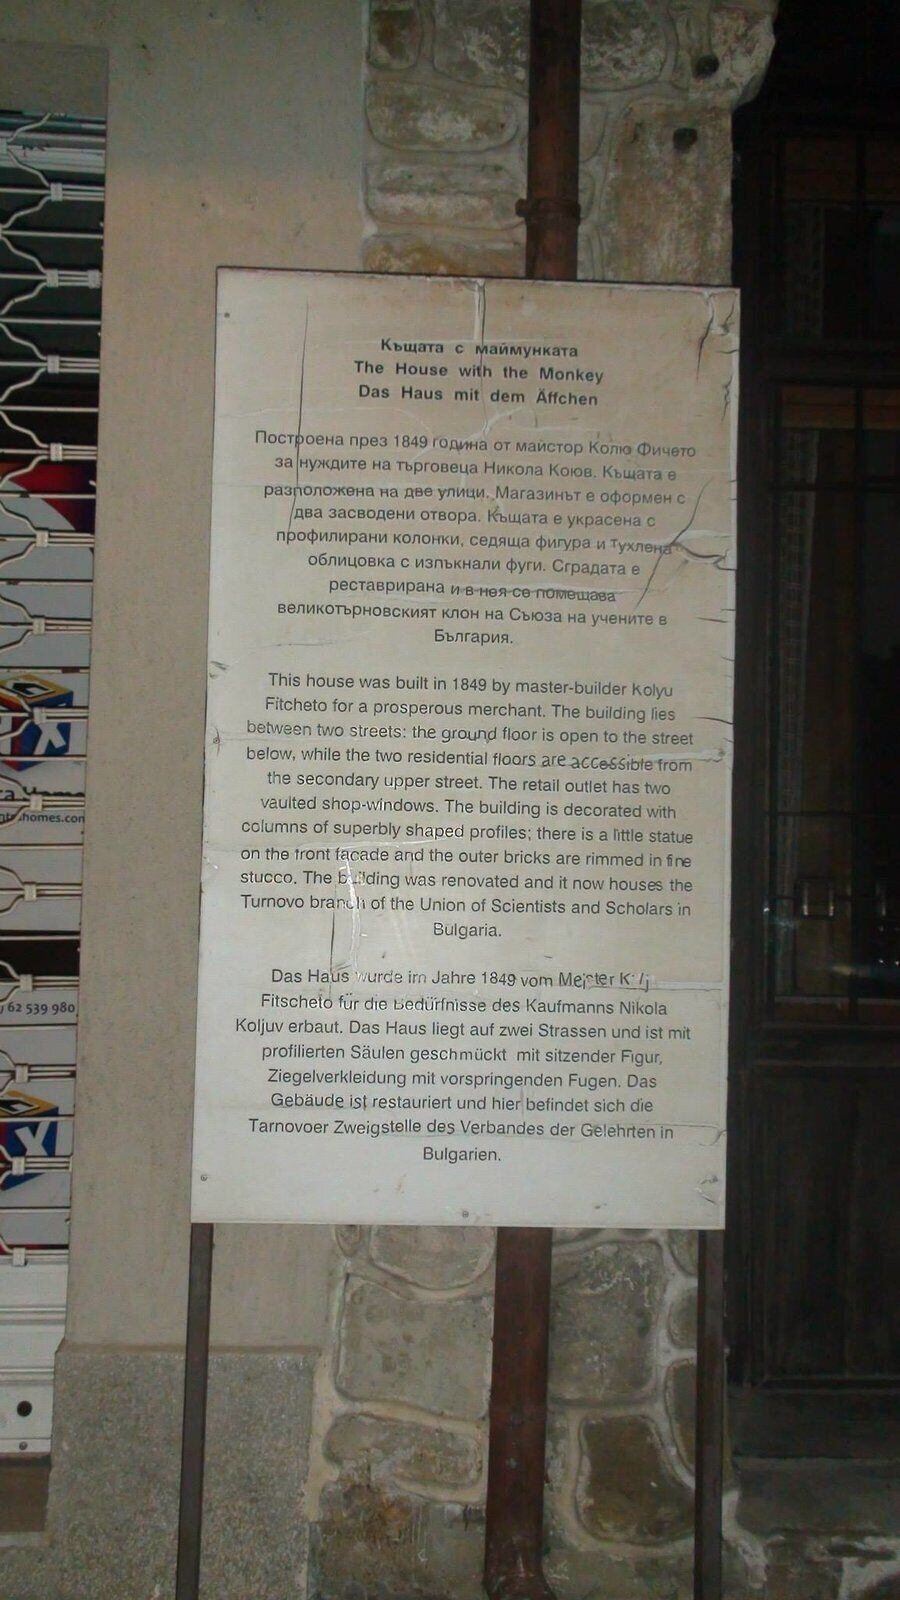 Къщата с маймунката
The House with the Monkey
Das Haus mit dem Äffchen
Построена през 1849 година от майстор Колю Фичето
за нуждите на търговеца Никола Коюв. Къщата е
разположена на две улици. Магазинът е оформен с
два засводени отвора. Къщата е украсена с
профилирани колонки, седяща фигура и тухлена
облицовка с изпъкнали фуги. Сградата е
реставрирана и в нея се помещава
великотърновският клон на Съюза на учените в
България.
This house was built in 1849 by master-builder Kolyu
Fitcheto for a prosperous merchant. The building lies
between two streets: the ground floor is open to the street
below, while the two residential floors are accessible from
the secondary upper street. The retail outlet has two
vaulted shop-windows. The building is decorated with
columns of superbly shaped profiles; there is a little statue
on the front facade and the outer bricks are rimmed in fine
stucco. The building was renovated and it now houses the
Turnovo branch of the Union of Scientists and Scholars in
Bulgaria.
Das Haus wurde im Jahre 1849 vom Meister
Fitscheto für die Bedürfnisse des Kaufmanns Nikola
Koljuv erbaut. Das Haus liegt auf zwei Strassen und ist mit
profilierten Säulen geschmückt mit sitzender Figur,
Ziegelverkleidung mit vorspringenden Fugen. Das
Gebäude ist restauriert und hier befindet sich die
Tarnovoer Zweigstelle des Verbandes der Gelehrten in
Bulgarien.
62 539 980